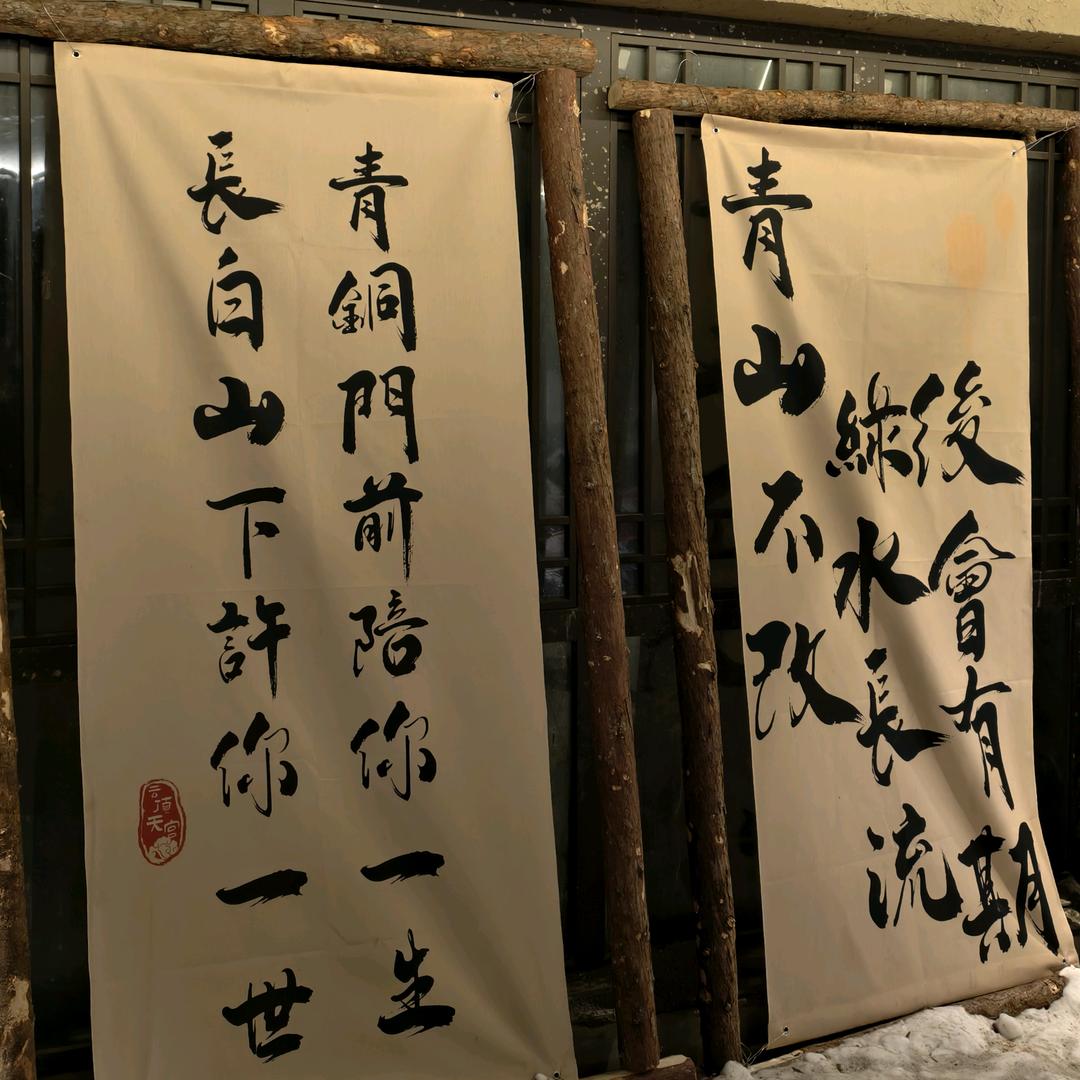 青銅門前陪你一生
長白山下許你一世
云頂天宮
青山不改
綠水長流
後會有期